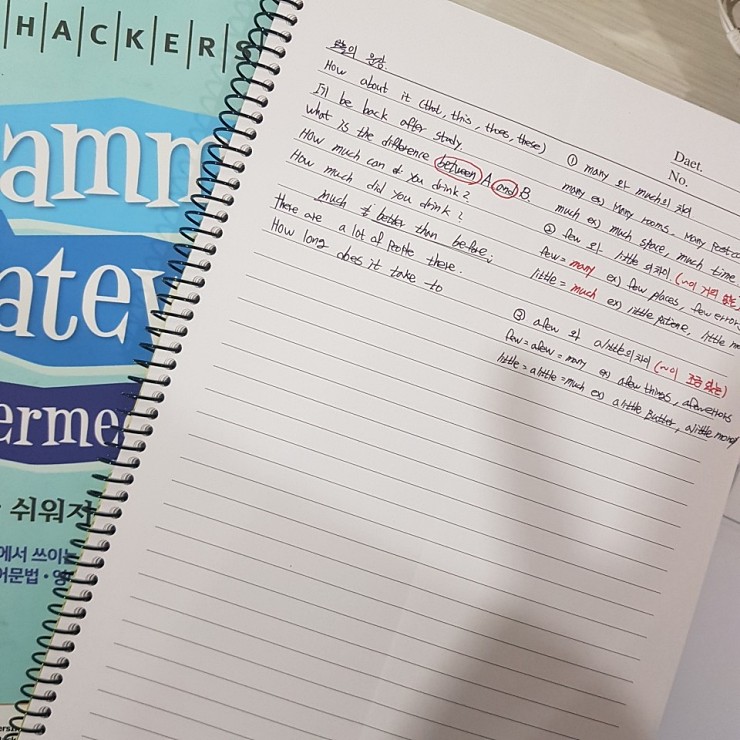 HACKERS
amm
atew
erme
쉬워지
에서 쓰이는
어문법 · 영
Daet.
No.
How about it (that, this, thoes, these)
I'll be back after study
what is the difference between A and B.
How much can you drink?
How much did you drink?
much better than before;
there are a lot of people there.
How long does it take to
① many 와 much의 차이
many ex) many rooms. many
much ex) much space, much time.
② few 와 little의 차이 (~이 거의 없는)
few = many ex) few places, few errors
little = much ex) little, little
③ afew 와 alittle의 차이 (~이 조금 있는)
few = afew = many ex) afew things, afew errors
little = alittle = much ex) alittle Butter, alittle money